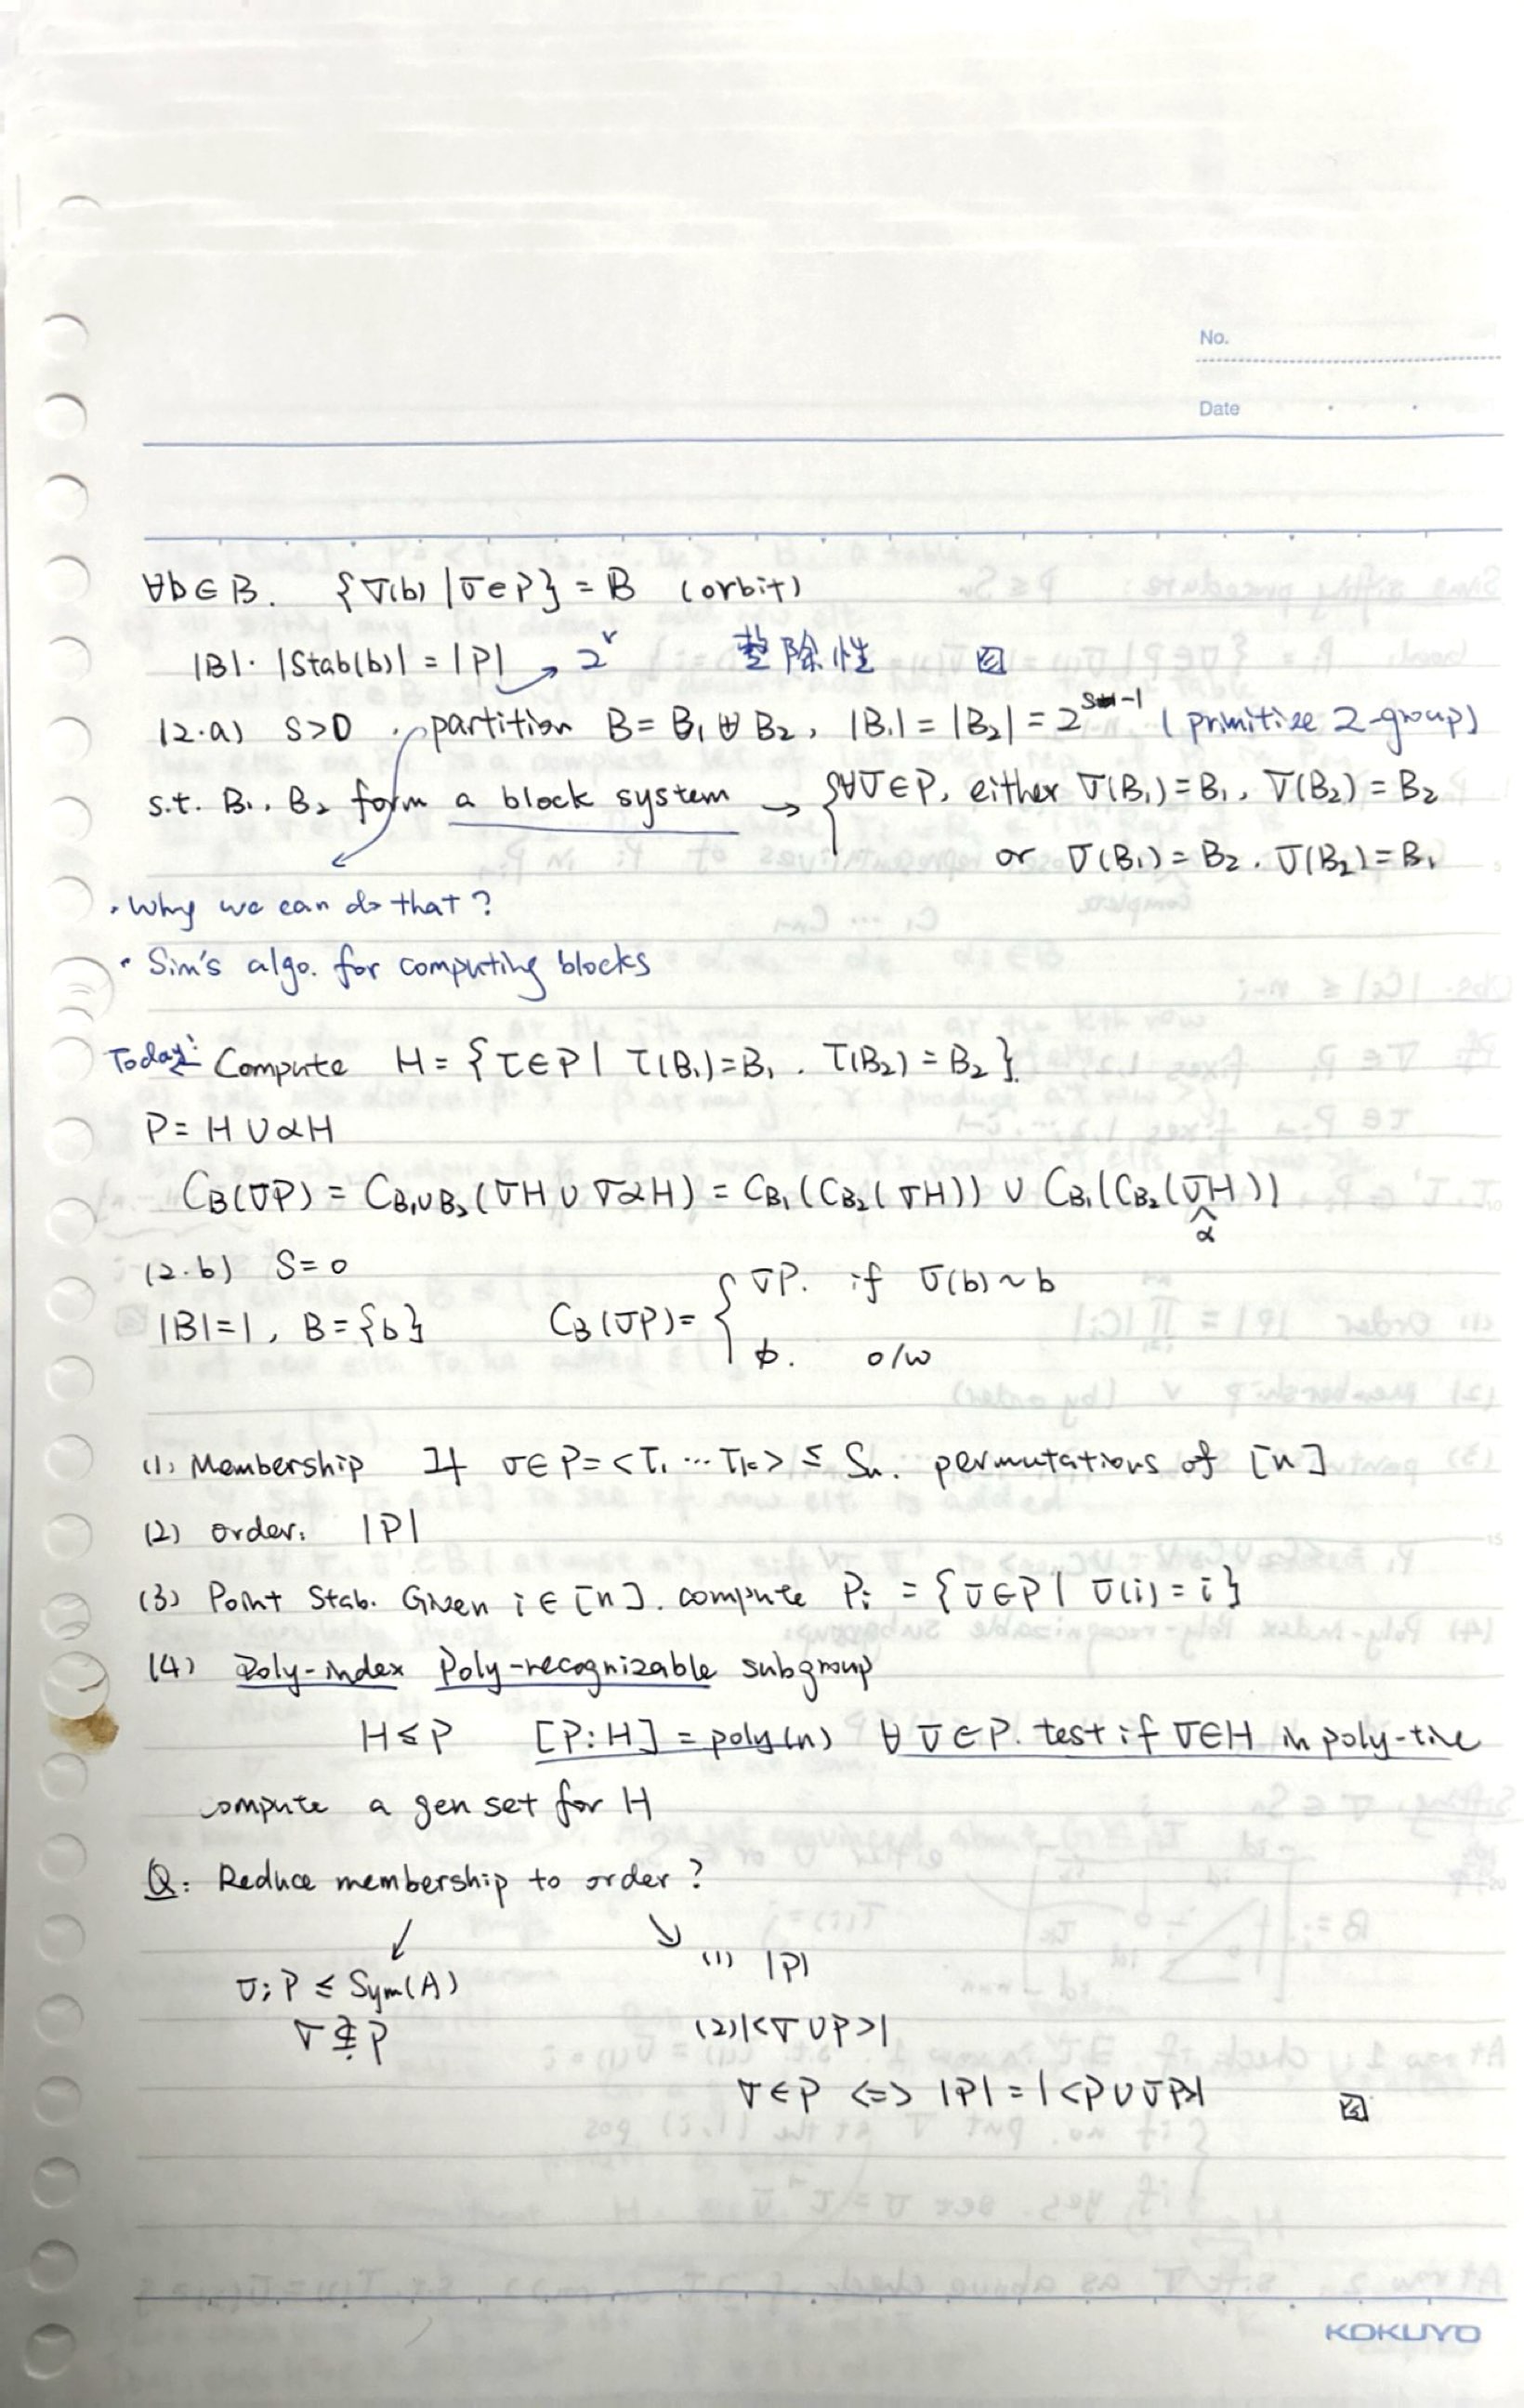 No.
Date
∀b∈B. {σ(b) | σ∈P} = B (orbit)
|B|· |Stab(b)| = |P| → 2^r 整除性
(2.a) S>0 . partition B = B₁ ⊎ B₂, |B₁| = |B₂| = 2^{s-1} (primitive 2-group)
s.t. B₁, B₂ form a block system → { ∀σ∈P, either σ(B₁)=B₁, σ(B₂)=B₂
or σ(B₁)=B₂. σ(B₂)=B₁
· Why we can do that?
· Sim's algo. for computing blocks
Today: Compute H = {τ∈P | τ(B₁)=B₁ . τ(B₂)=B₂}.
P = H ∪ αH
C_B(σP) = C_{B₁∪B₂}(σH ∪ σαH) = C_{B₁}(C_{B₂}(σH)) ∪ C_{B₁}(C_{B₂}(σαH))
(2.b) S=0
|B|=1, B={b} C_B(σP) = { σP. if σ(b)~b
∅. o/w
(1) Membership If σ∈P=<τ₁ ⋯ τₖ> ≤ Sₙ. permutations of [n]
(2) order. |P|
(3) Point Stab. Given i∈[n]. compute Pᵢ = {σ∈P | σ(i) = i}
(4) Poly-index Poly-recognizable subgroup
H≤P [P:H] = poly(n) ∀ σ∈P. test if σ∈H in poly-time
compute a gen set for H
Q: Reduce membership to order?
↙ ↘ (1) |P|
σ; P ≤ Sym(A)
σ ∈? P (2) |<σ∪P>|
σ∈P <=> |P| = |<P∪σP>|
KOKUYO